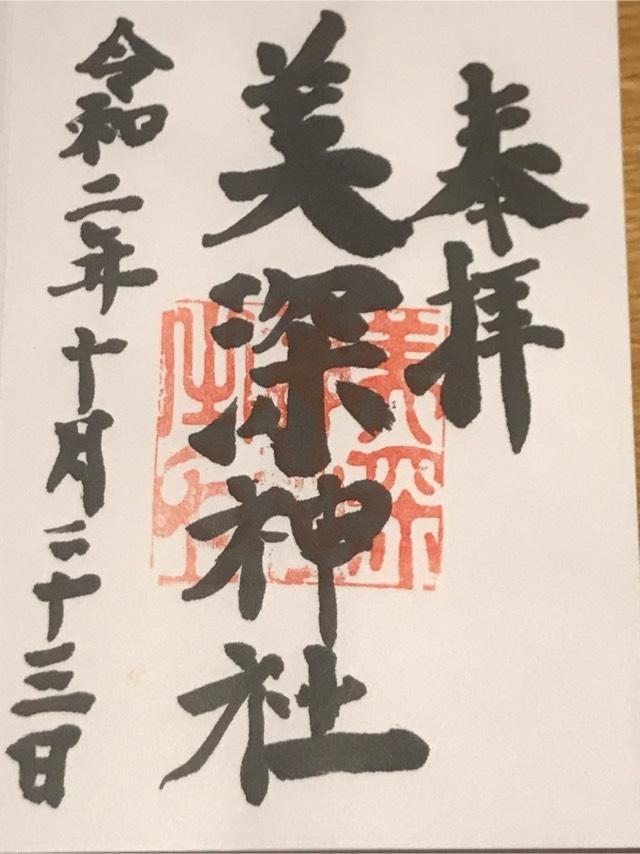 奉拝
美深神社
令和二年十月二十三日